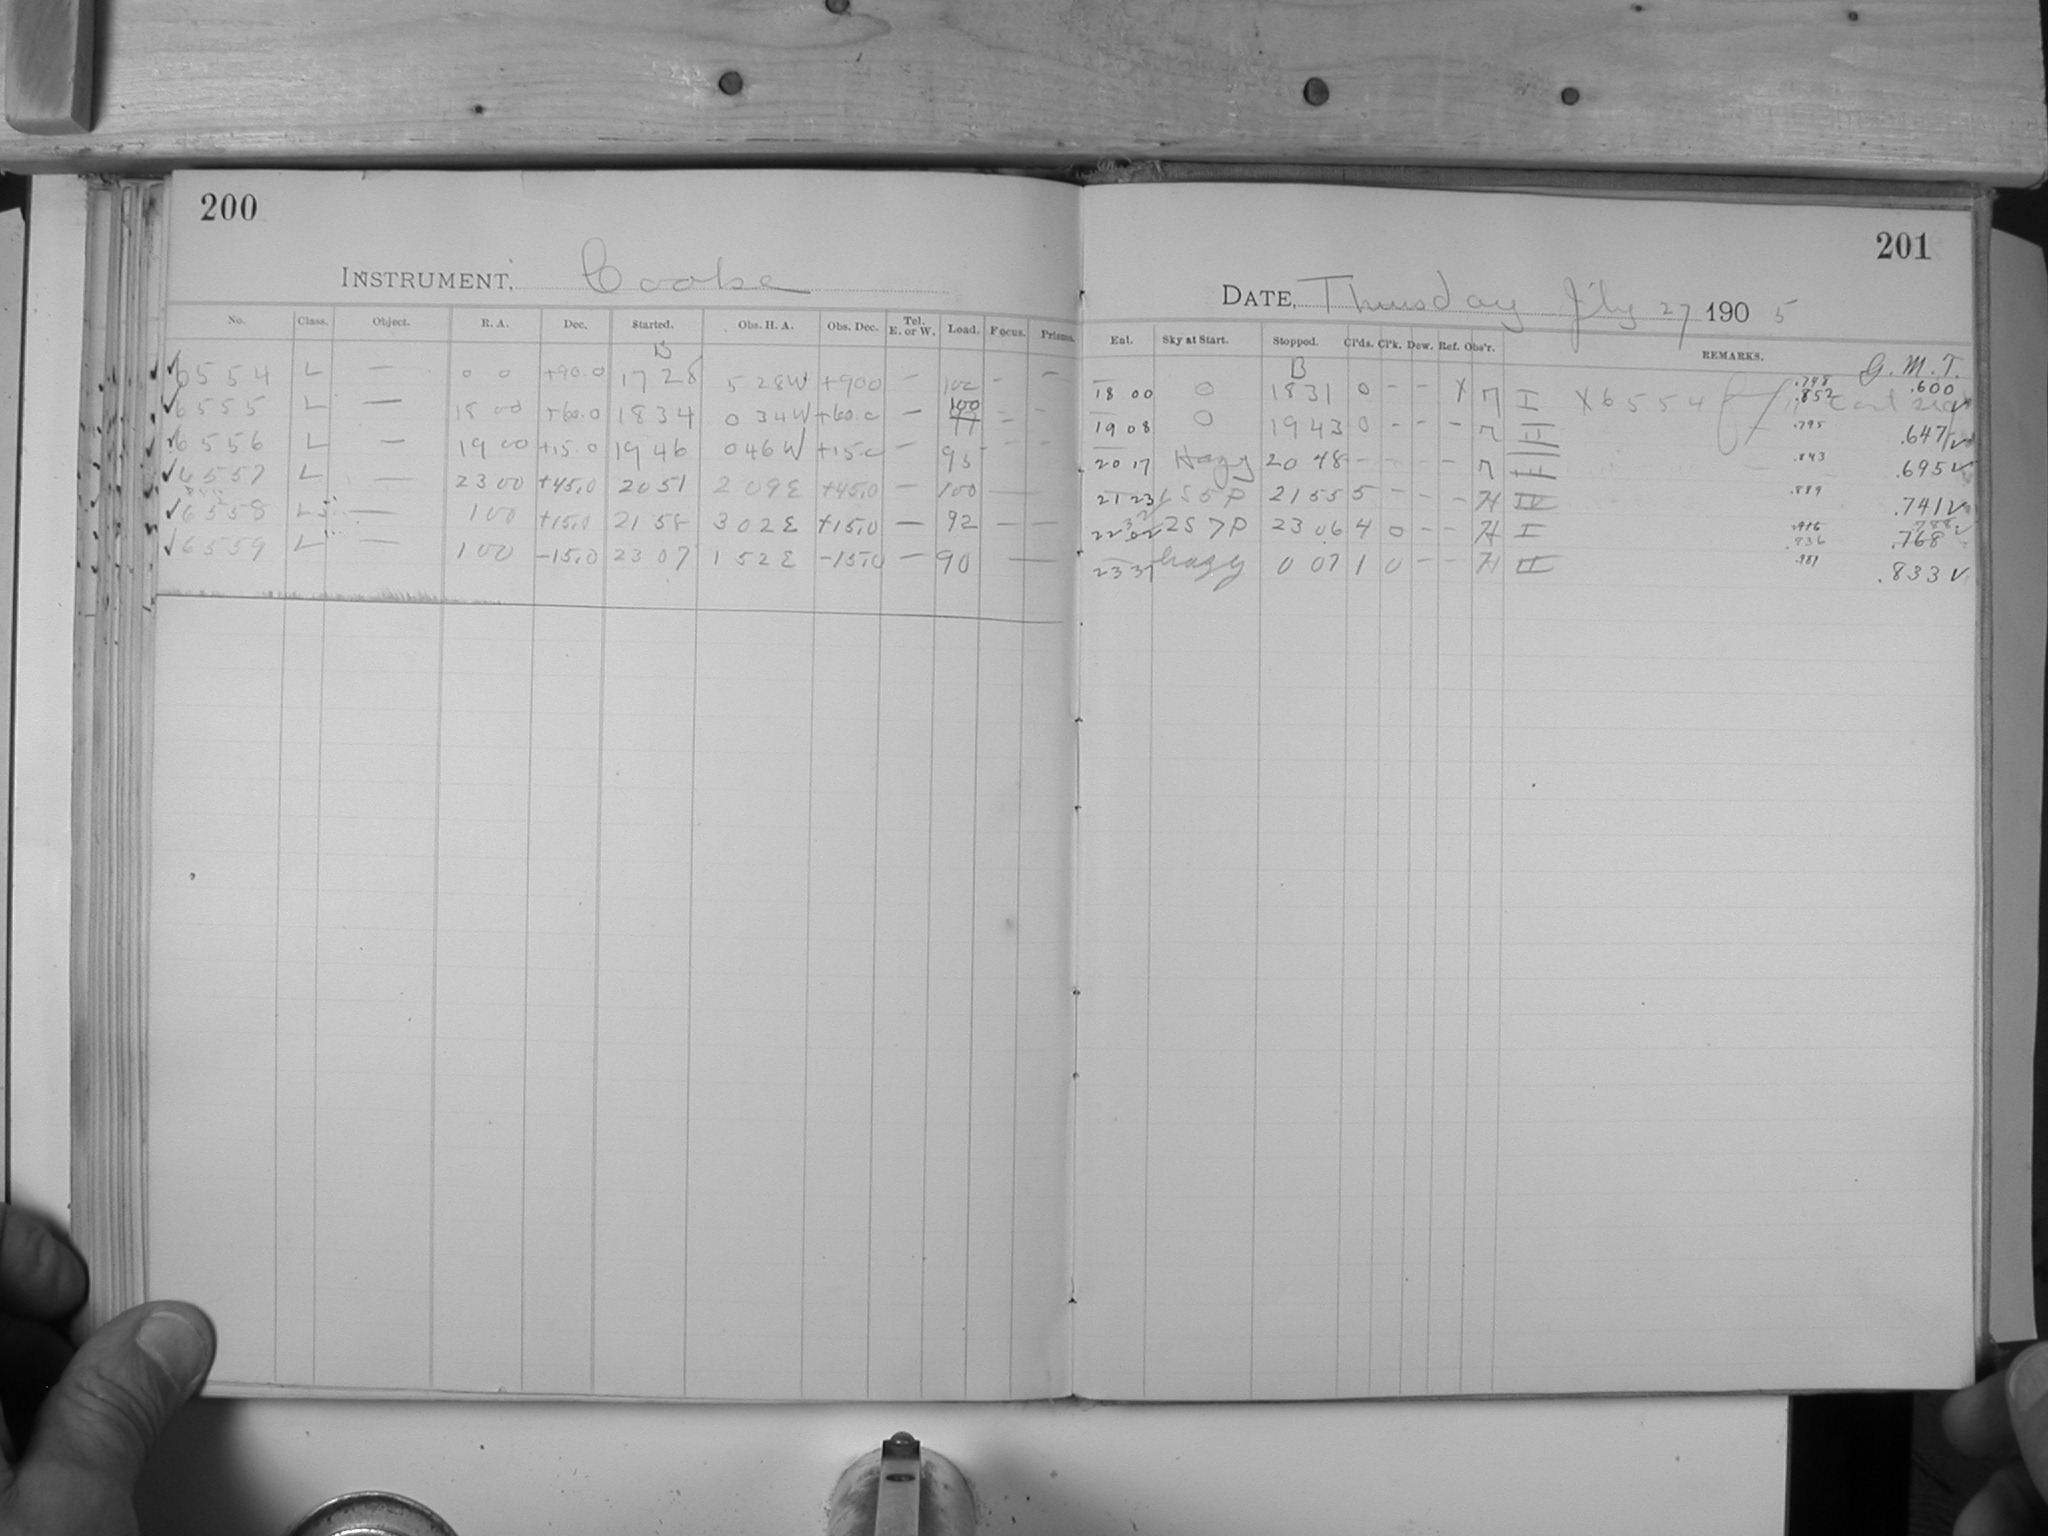 200
INSTRUMENT, Cooke
No. Class. Object. R. A. Dec. Started. Obs. H. A. Obs. Dec. Tel. E. or W. Load. Focus. Prisms.
B
✓6554 L — 0 0 +90.0 17 28 5 28W +900 — 100 - —
✓6555 L — 18 00 +60.0 18 34 0 34W +60.0 — 100 — -
✓6556 L — 19 00 +15.0 19 46 0 46W +15.0 — 95 - -
✓6557 L — 23 00 +45.0 20 51 2 09E +45.0 — 100 —
✓6558 L — 1 00 +15.0 21 58 3 02E +15.0 — 92 — —
✓6559 L — 1 00 -15.0 23 07 1 52E -15.0 — 90 —
201
DATE, Thursday July 27 1905
Eal. Sky at Start. Stopped. Cl'ds. Cl'k. Dew. Ref. Obs'r. REMARKS.
B G. M. T.
18 00 0 18 31 0 - - X I X6554 .748 .852 .600
19 08 0 19 43 0 - - - II .795 .647 ✓
20 17 Hazy 20 48 - - - - III .843 .695 ✓
21 23 1S5P 21 55 5 - - - H IV .889 .741 ✓
22 02 2S7P 23 06 4 0 - - H I .916 .936 .788 ✓ .768
23 37 hazy 0 07 1 0 - - H II .981 .833 ✓